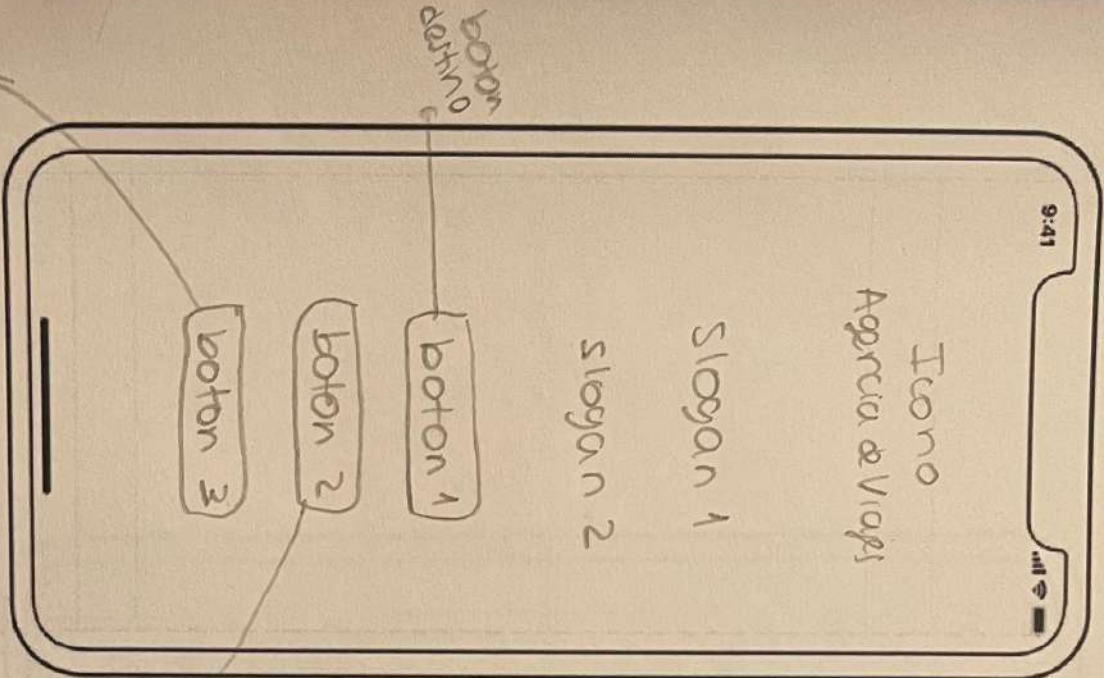 9:41
Icono
Agencia de Viajes
Slogan 1
Slogan 2
boton
destino
boton 1
boton 2
boton 3